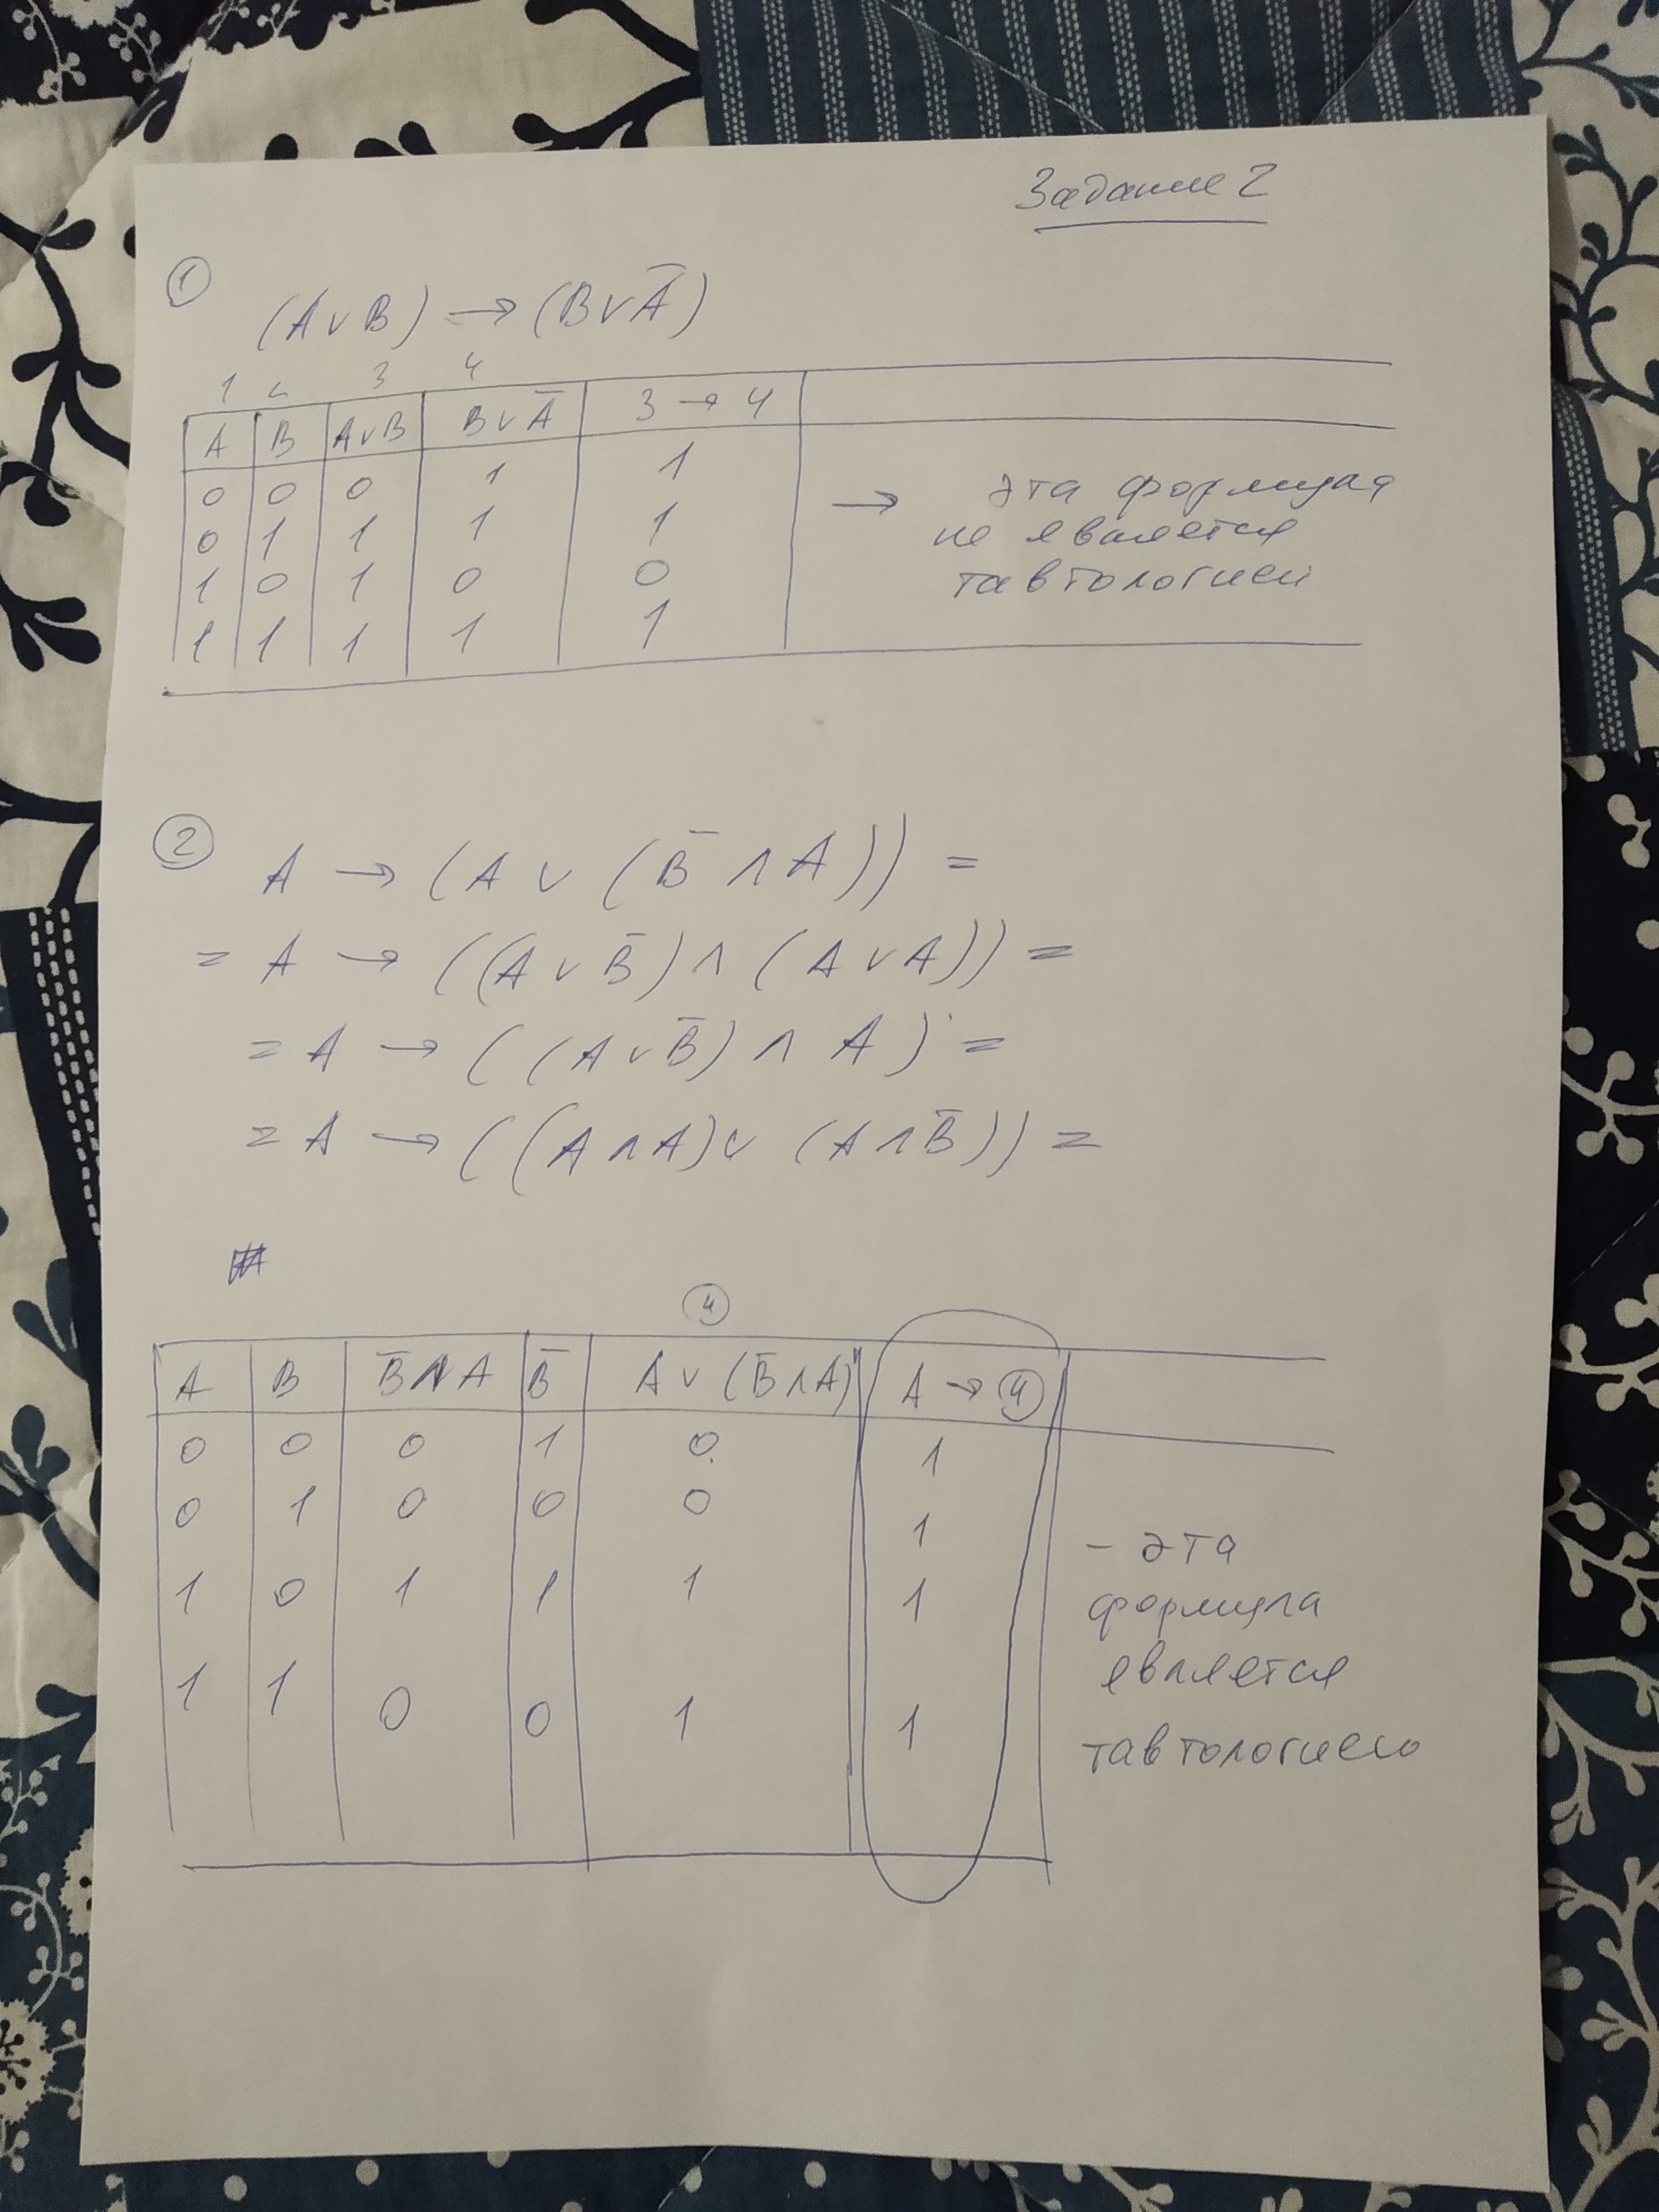 Задание 2
①
(A∨B) → (B∨Ā)
1 2 3 4
A B A∨B B∨Ā 3 → 4
0 0 0 1 1
0 1 1 1 1
1 0 1 0 0
1 1 1 1 1
→ эта формула
не является
тавтологией
②
A → (A ∨ (B̄ ∧ A)) =
= A → ((A ∨ B̄) ∧ (A ∨ A)) =
= A → ((A ∨ B̄) ∧ A) =
= A → ((A ∧ A) ∨ (A ∧ B̄)) =
④
A B B̄ ∧ A B̄ A ∨ (B̄ ∧ A) A → ④
0 0 0 1 0 1
0 1 0 0 0 1
1 0 1 1 1 1
1 1 0 0 1 1
- эта
формула
является
тавтологиею